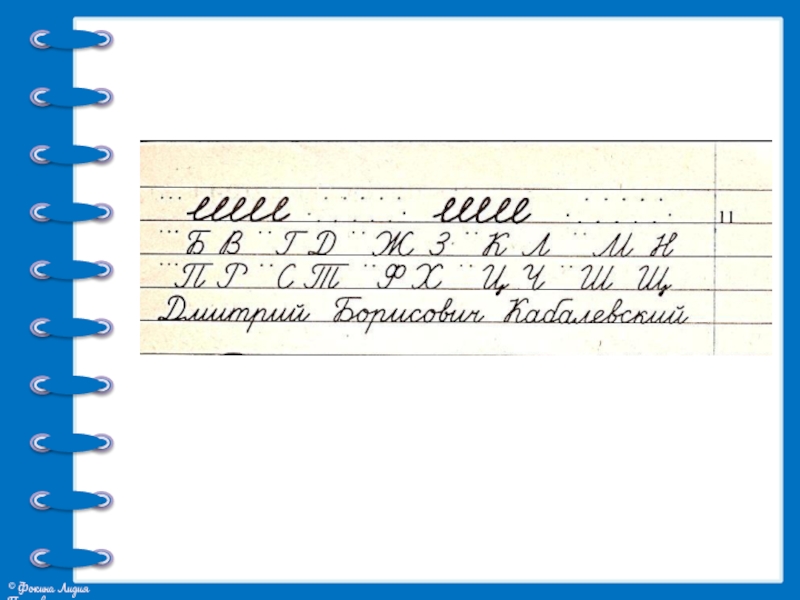 еееее еееее 11
Б В Г Д Ж З К Л М Н
П Р С Т Ф Х Ц Ч Ш Щ
Дмитрий Борисович Кабалевский
© Фокина Лидия